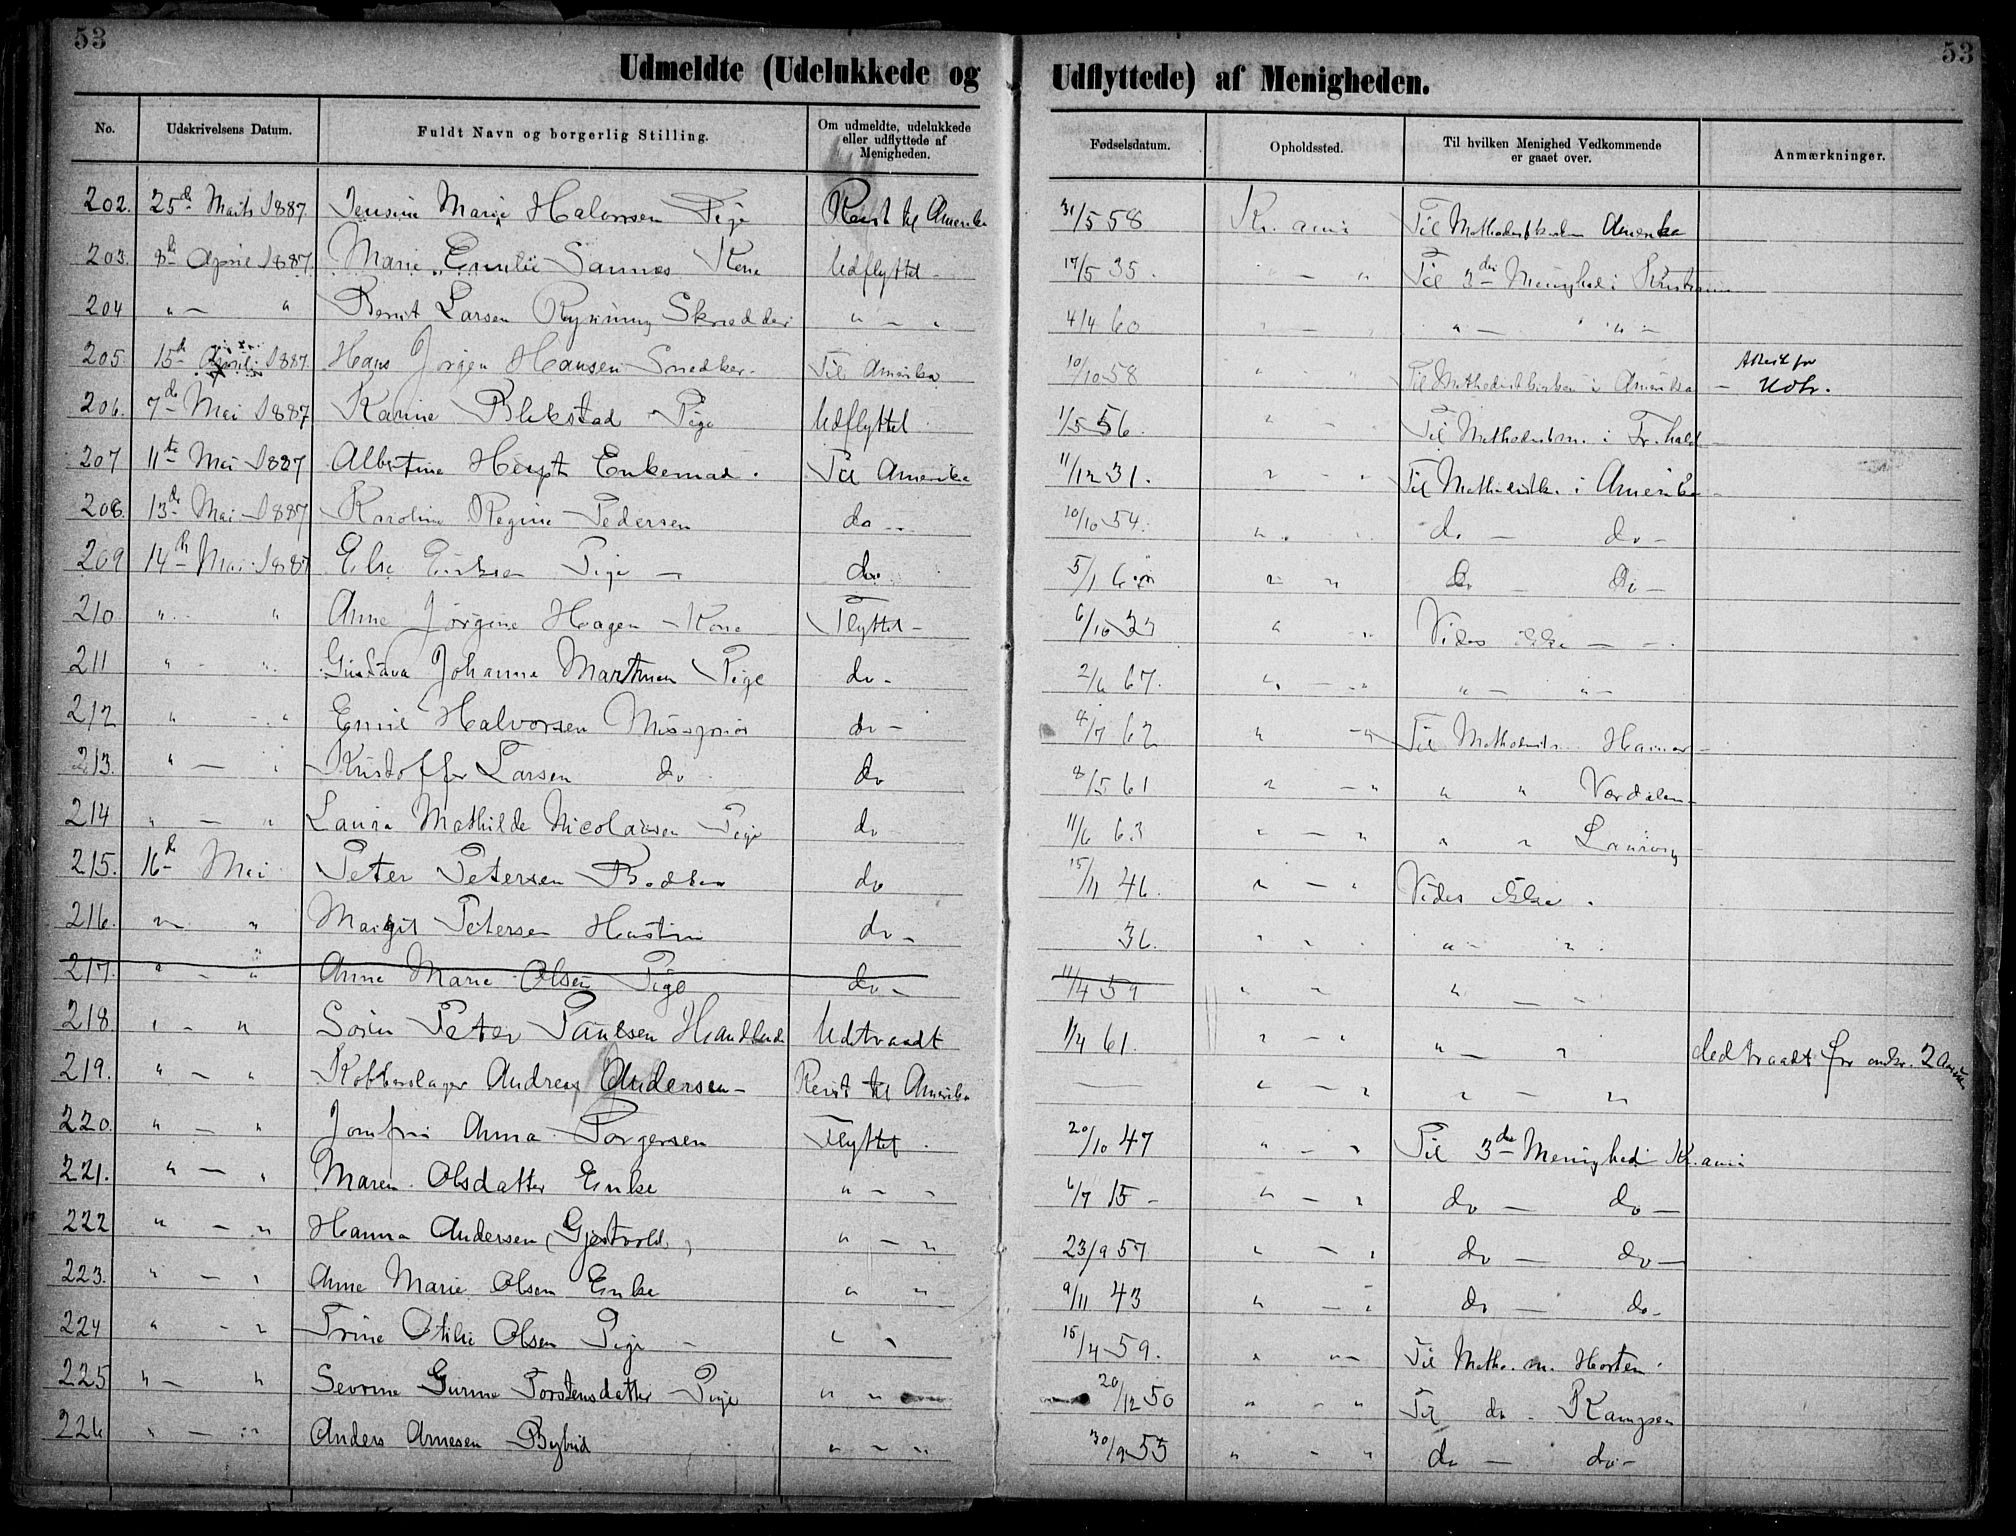 53
53
Udmeldte (Udelukkede og Udflyttede) af Menigheden.
No. Udskrivelsens Datum. Fuldt Navn og borgerlig Stilling. Om udmeldte, udelukkede eller udflyttede af Menigheden. Fødselsdatum. Opholdssted. Til hvilken Menighed Vedkommende er gaaet over. Anmærkninger.
202. 25de Marts 1887. Jensine Marie Halvorsen Pige Reist til Amerika 31/5 58 Kr. ania Til Methodistkirken Amerika
203. 8de April 1887. Marie Emilie Sannes Kone Udflyttet - 17/5 35. " — " Til 3die Menighed i Kristiania
204 " — " Bernt Larsen Skrædder " — " 4/4 60 " — " " — " " —
205. 15de April 1887. Hans Jørgen Hansen Snedker. Til Amerika 10/10 58 " " Til Methodistkirken i Amerika — Attest for Udtr.
206. 7de Mai 1887 Karine Blekstad Pige Udflyttet 1/5 56. " - " Til Methodistm. i Fr.hald
207 11te Mai 1887 Albertine Enkemad. Til Amerika 11/12 31. " - " Til Methodistk. i Amerika
208. 13de Mai 1887 Karoline Regine Pedersen do - 10/10 54. " " do — do -
209 14de Mai 1887 Else Eriksen Pige — do. 5/1 6 " " do do —
210 " - " Anne Jørgine Hagen - Kone Flyttet - 6/10 " " Vides ikke — -
211 " - " Gustava Johanne Martinsen Pige do - 2/6 67. " — " " — " —
212 " - " Emil Halvorsen do - /7 62 " - " Til Methodistk. Hamar -
213. " — " Kristoffer Larsen do do 8/5 61 " — " " " Værdalen -
214 " — " Laura Mathilde Nicolaisen Pige do 11/6 63 " - " " " Laurvig
215. 16de Mai Peter Petersen do 15/11 46. " — " Vides ikke.
216. " " Margit Petersen Hustru do - 36. " - " " - "
217. " - " Anne Marie Olsen Pige do - 11/4 59 " " " — "
218. " - " Søren Peter Paulsen Udtraadt 11/4 61. " - " " — " Udtraadt for
219. " — " Kobberslager Andreas Andersen - Reist til Amerika — " — " " — "
220. " — " Jomfru Anna Torgersen Flyttet. 20/10 47 " — " Til 3die Menighed Kr.ania
221. " — " Maren Olsdatter Enke " — " 6/7 15 - " — " do — do —
222 " — " Hanna Andersen (Gjestvold) " — " 23/9 57 " — " do — do —
223. " — " Anne Marie Olsen Enke " " 9/11 43 " — " do — do -
224 " — " Trine Otilie Olsen Pige - " " 15/4 59. " " — Til Metho. m. Horten.
225 " — " Sevrine Gurine Torstensdatter Pige " " 20/12 50 " — " Til do -
226 " — " Anders Arnesen " — " 30/9 55 " - " do — do -